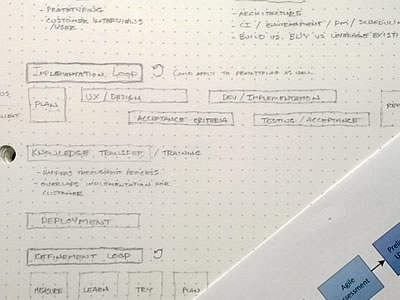 - PROTOTYPING
- CUSTOMER INTERVIEWS
/ USER
- ARCHITECTURE
- CI / ENVIRONMENT / PM / SCHEDULING
- BUILD VS. BUY VS LEVERAGE EXISTI
IMPLEMENTATION LOOP
(CAN APPLY TO PROTOTYPING AS WELL
PLAN
UX / DESIGN
DEV / IMPLEMENTATION
ACCEPTANCE CRITERIA
TESTING / ACCEPTANCE
KNOWLEDGE TRANSFER / TRAINING
- HAPPENS THROUGHOUT PROCESS
- OVERLAPS IMPLEMENTATION FOR
CUSTOMER
DEPLOYMENT
REFINEMENT LOOP
MEASURE
LEARN
TRY
PLAN
Agile